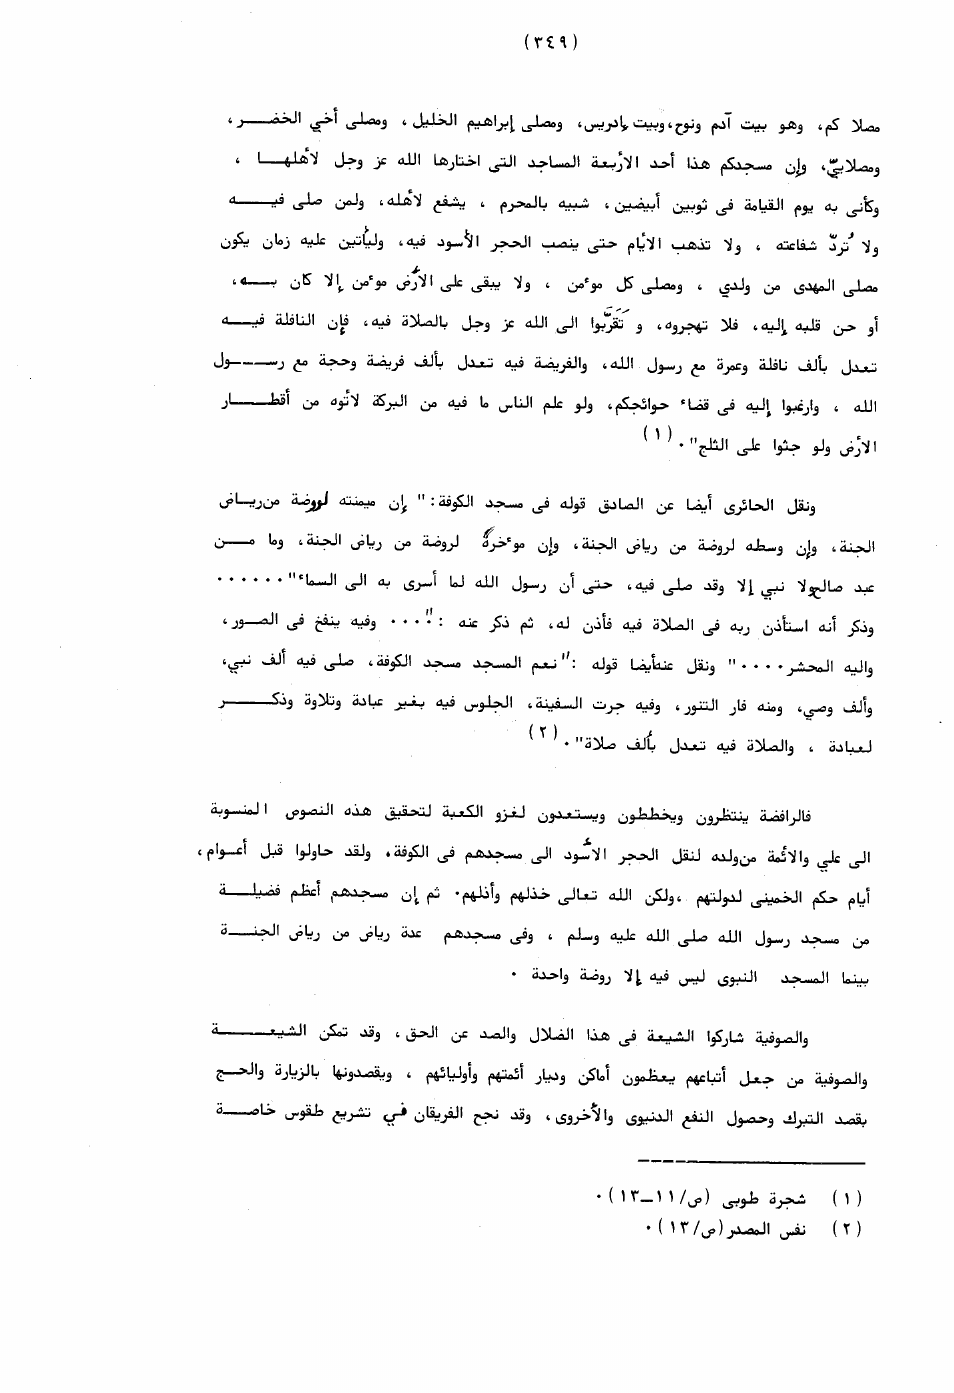 (٣٤٩)
مصلاكم، وهو بيت آدم ونوح، وبيت إدريس، ومصلى إبراهيم الخليل، ومصلى أخي الخضر،
ومصلايّ، وإن مسجدكم هذا أحد الأربعة المساجد التى اختارها الله عز وجل لأهلها ،
وكأنى به يوم القيامة فى ثوبين أبيضين، شبيه بالمحرم ، يشفع لأهله، ولمن صلى فيه
ولا تُردّ شفاعته ، ولا تذهب الأيام حتى ينصب الحجر الأسود فيه، وليأتين عليه زمان يكون
مصلى المهدى من ولدي ، ومصلى كل مؤمن ، ولا يبقى على الأرض مؤمن إلا كان به،
أو حن قلبه إليه، فلا تهجروه، و تَقَرَّبوا الى الله عز وجل بالصلاة فيه، فإن النافلة فيه
تعدل بألف نافلة وعمرة مع رسول الله، والفريضة فيه تعدل بألف فريضة وحجة مع رسول
الله ، وارغبوا إليه فى قضاء حوائجكم، ولو علم الناس ما فيه من البركة لأتوه من أقطار
الأرض ولو جثوا على الثلج".(١)
ونقل الحائرى أيضا عن الصادق قوله فى مسجد الكوفة: "إن ميمنته لروضة من رياض
الجنة، وإن وسطه لروضة من رياض الجنة، وإن مؤخره لروضة من رياض الجنة، وما من
عبد صالح ولا نبي إلا وقد صلى فيه، حتى أن رسول الله لما أسرى به الى السماء"......
وذكر أنه استأذن ربه فى الصلاة فيه فأذن له، ثم ذكر عنه :"... وفيه ينفخ فى الصور،
واليه المحشر...." ونقل عنه أيضا قوله :"نعم المسجد مسجد الكوفة، صلى فيه ألف نبي،
وألف وصي، ومنه فار التنور، وفيه جرت السفينة، الجلوس فيه بغير عبادة وتلاوة وذكر
لعبادة ، والصلاة فيه تعدل بألف صلاة".(٢)
فالرافضة ينتظرون ويخططون ويستعدون لغزو الكعبة لتحقيق هذه النصوص المنسوبة
الى علي والائمة من ولده لنقل الحجر الأسود الى مسجدهم فى الكوفة. ولقد حاولوا قبل أعوام،
أيام حكم الخمينى لدولتهم ،ولكن الله تعالى خذلهم وأذلهم. ثم إن مسجدهم أعظم فضيلة
من مسجد رسول الله صلى الله عليه وسلم ، وفى مسجدهم عدة رياض من رياض الجنة
بينما المسجد النبوى ليس فيه إلا روضة واحدة .
والصوفية شاركوا الشيعة فى هذا الضلال والصد عن الحق، وقد تمكن الشيعة
والصوفية من جعل أتباعهم يعظمون أماكن وديار أئمتهم وأوليائهم ، ويقصدونها بالزيارة والحج
بقصد التبرك وحصول النفع الدنيوى والأخروى، وقد نجح الفريقان في تشريع طقوس خاصة
(١) شجرة طوبى (ص/١١-١٣).
(٢) نفس المصدر(ص/١٣).